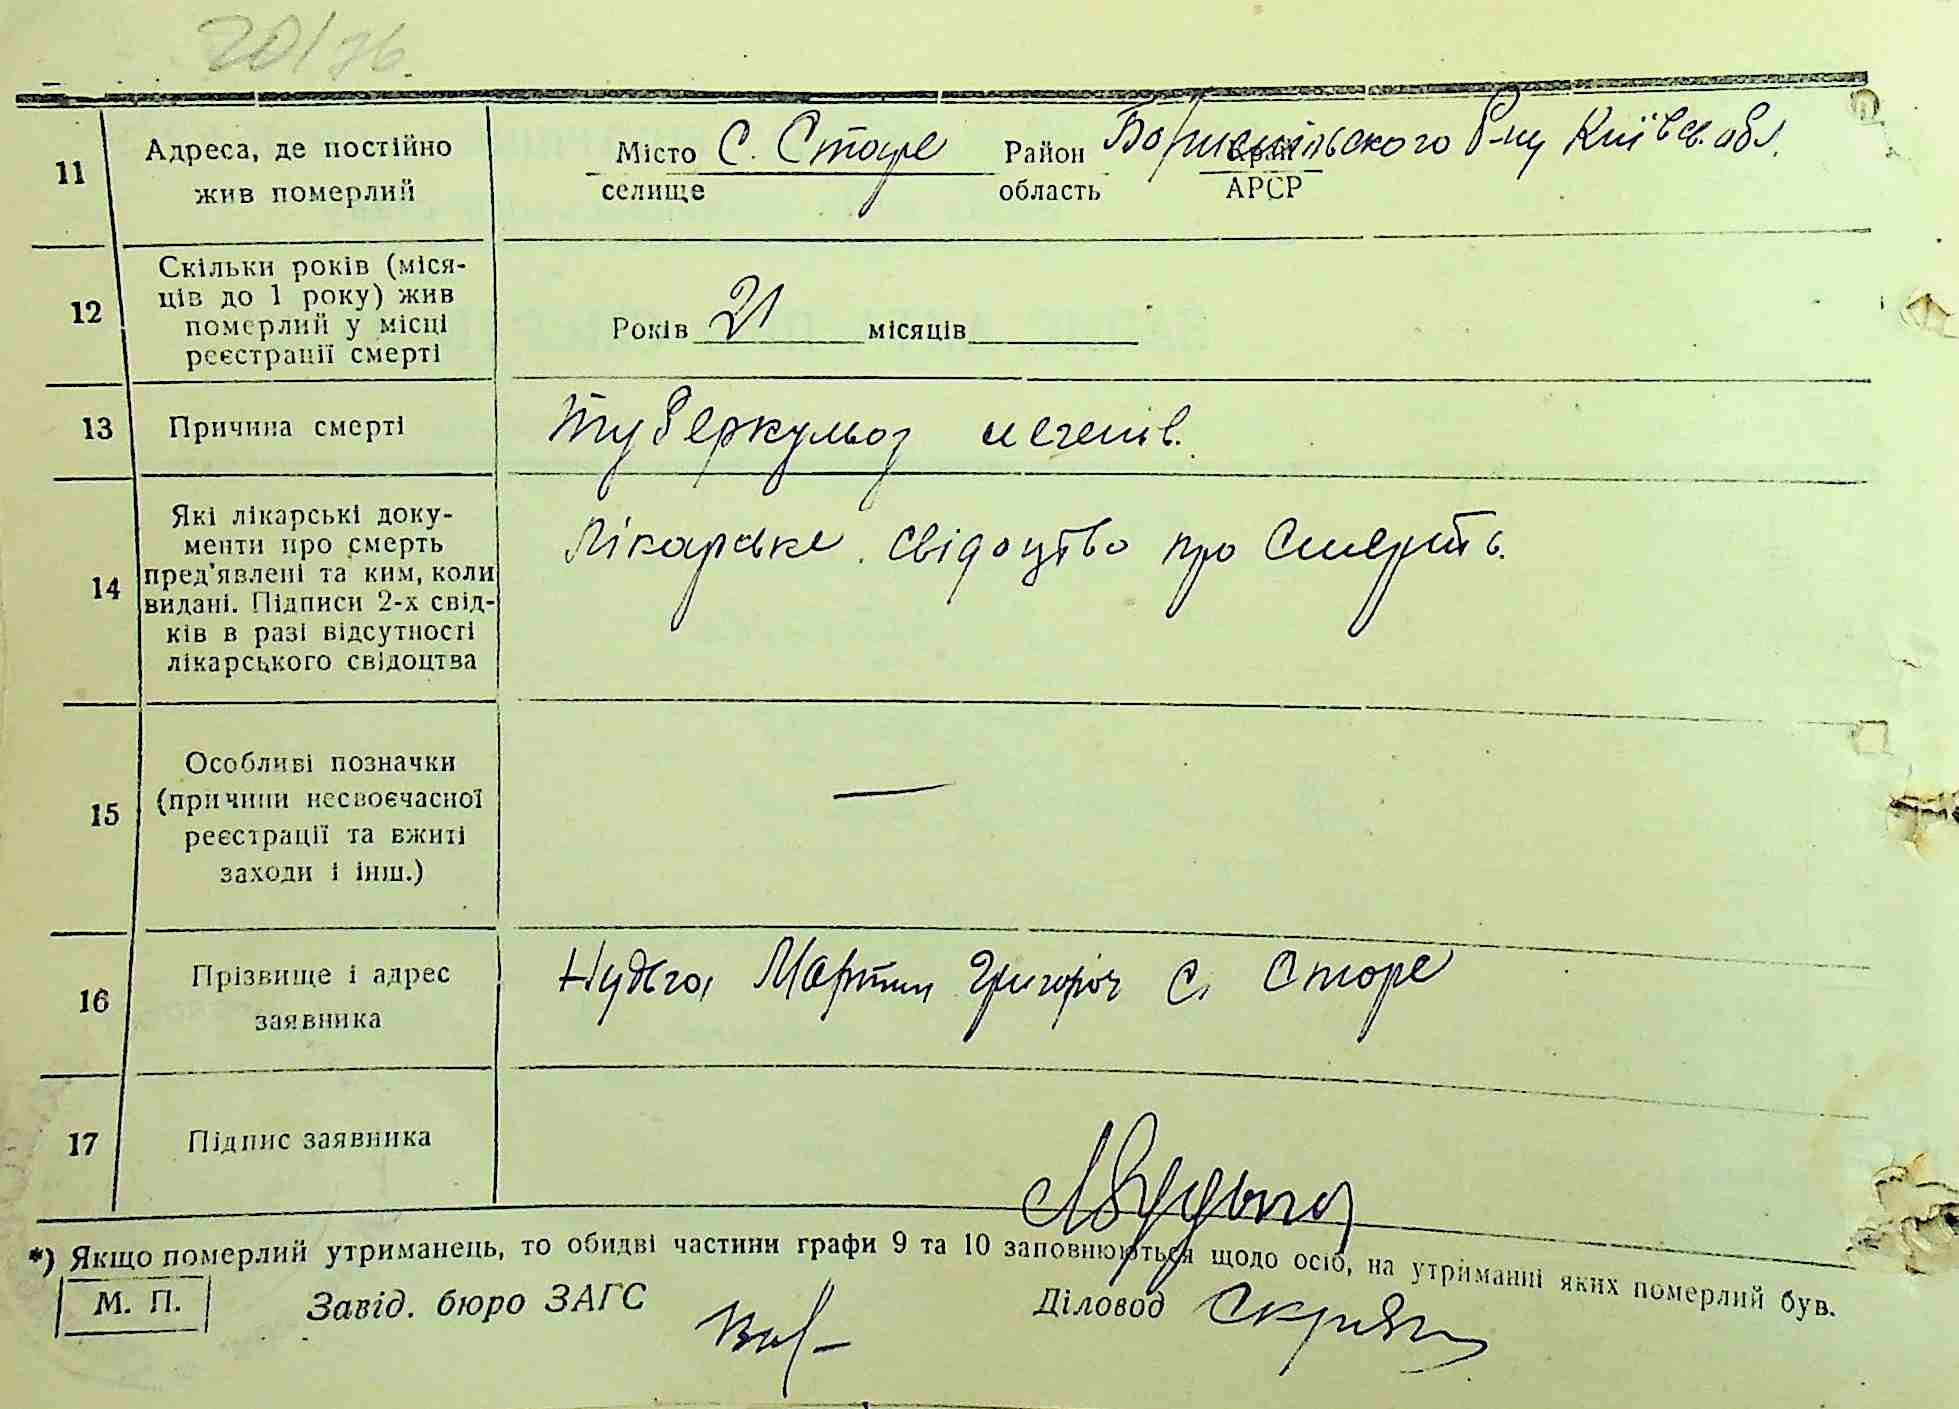 20/76.
11 Адреса, де постійно жив померлий Місто селище с. Старе Район область Бориспільського р-ну Київськ. обл. Край АРСР
12 Скільки років (міся-
ців до 1 року) жив
померлий у місці
реєстрації смерті
Років 21 місяців
13 Причина смерті Туберкульоз легенів.
14 Які лікарські доку-
менти про смерть
пред'явлені та ким, коли
видані. Підписи 2-х свід-
ків в разі відсутності
лікарського свідоцтва
Лікарське свідоцтво про смерть.
15 Особливі позначки
(причини несвоєчасної
реєстрації та вжиті
заходи і інш.)
—
16 Прізвище і адрес
заявника
Нудьга Мартин Григоріч с. Старе
17 Підпис заявника
*) Якщо померлий утриманець, то обидві частини графи 9 та 10 заповнюються щодо осіб, на утриманні яких померлий був.
М. П. Завід. бюро ЗАГС Діловод